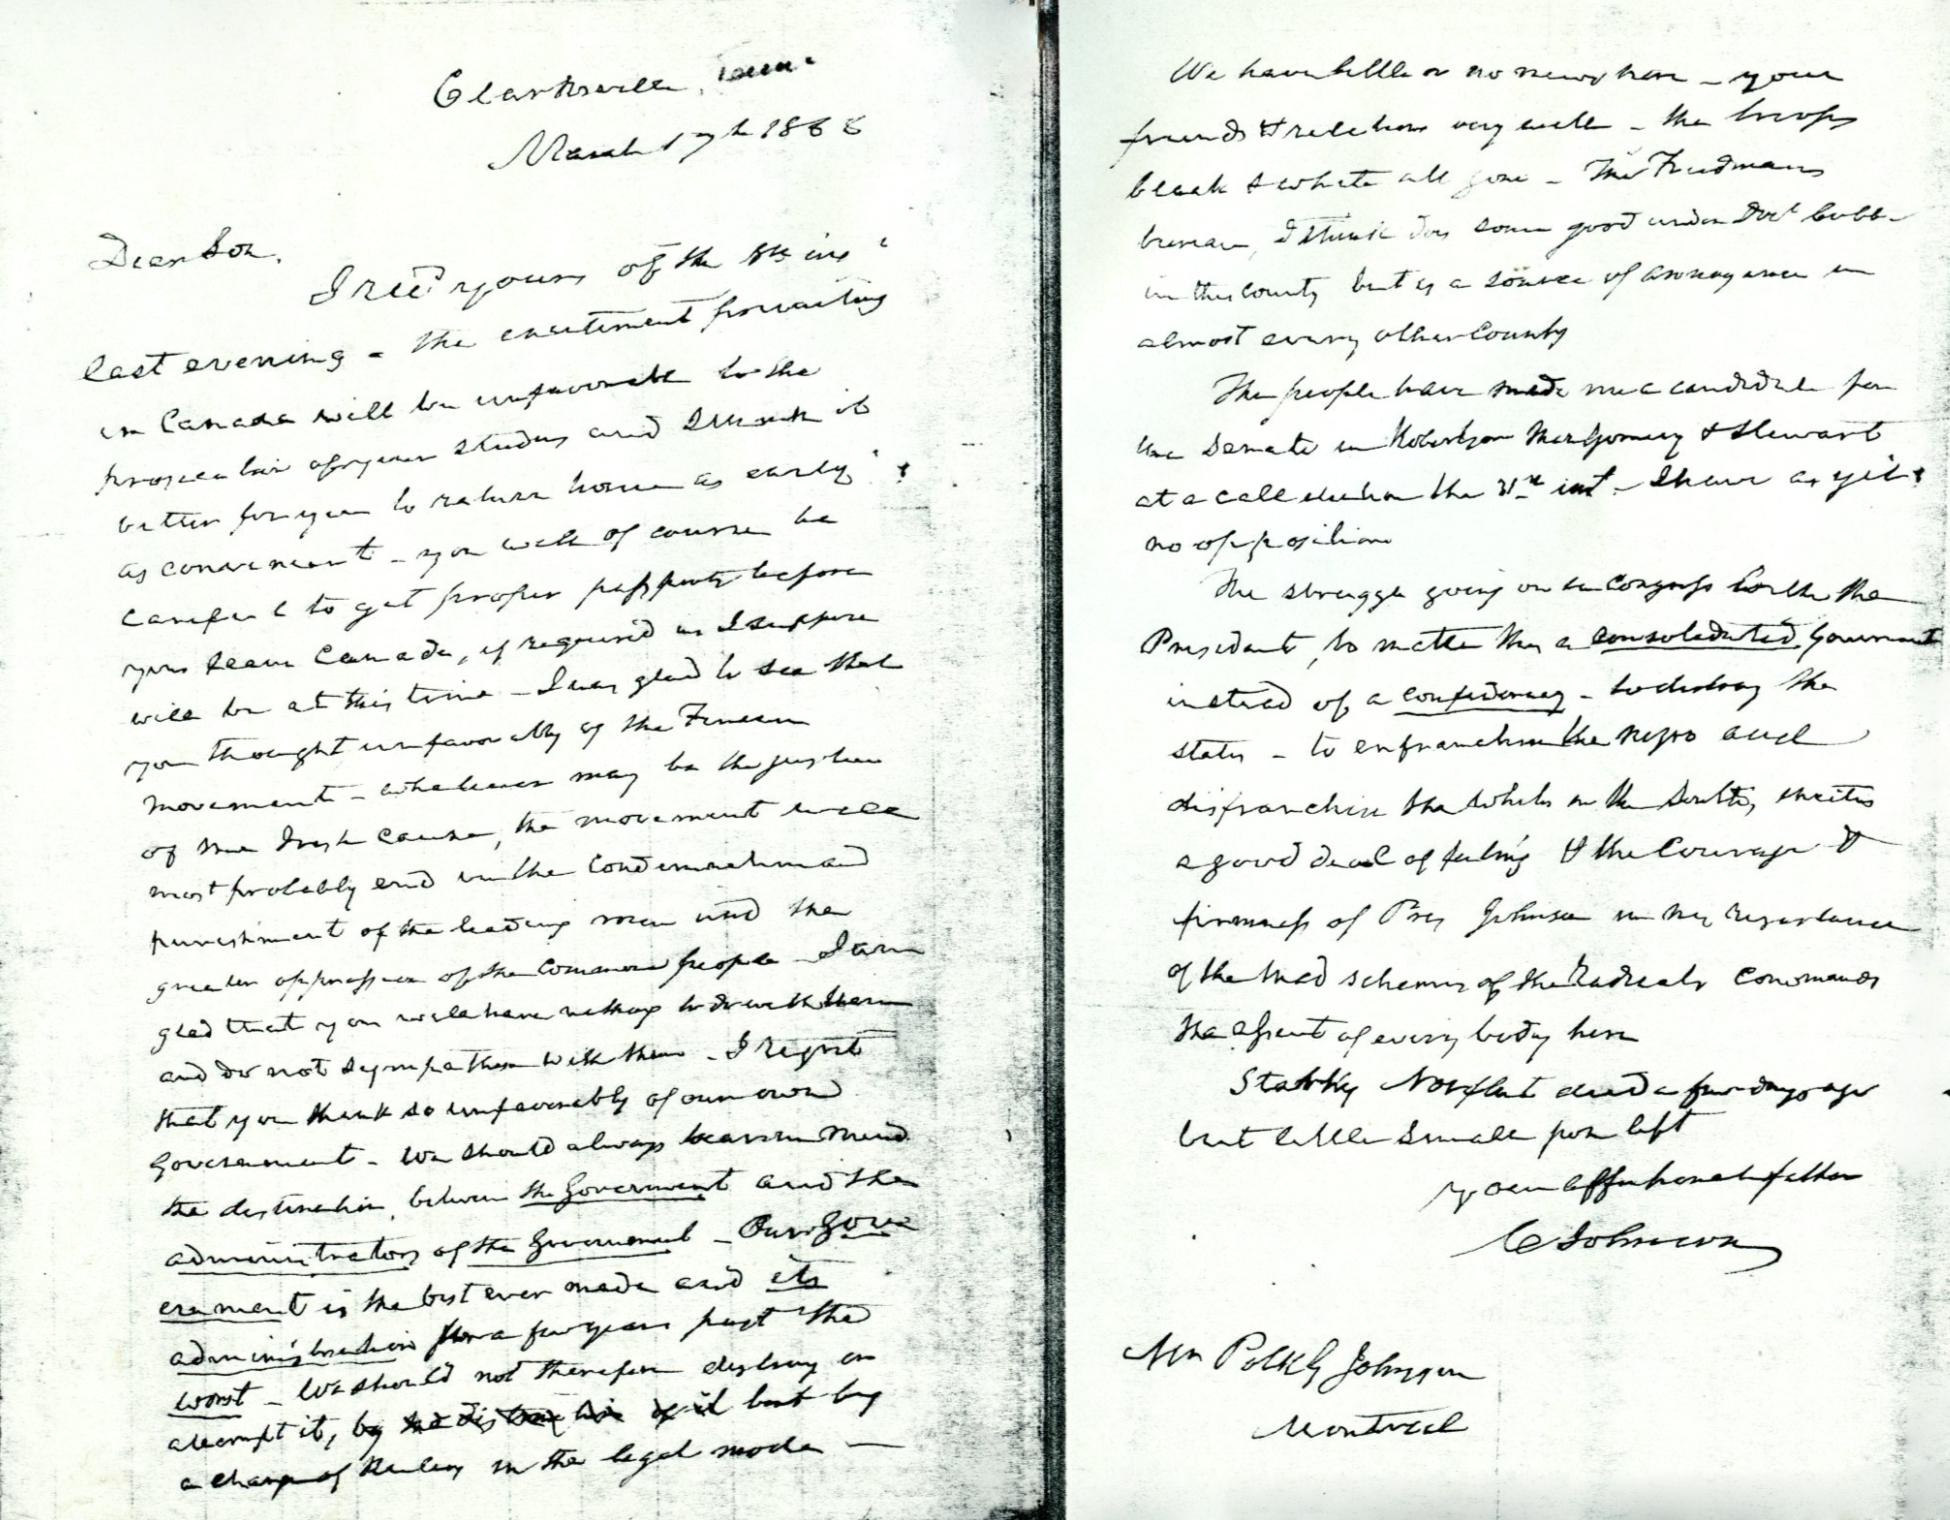 Clarksville, Tenn.
March 17th 1866
Dear Son,
I recd yours of the 8th inst
last evening - The excitement prevailing
in Canada will be unfavorable to the
prosecution of your studies and I think it
better for you to return home as early
as convenient - you will of course be
careful to get proper passports before
you leave Canada, if required as I suppose
will be at this time - I was glad to see that
you thought unfavorably of the Fenean
movement - whatever may be the justice
of the Irish cause, the movement will
most probably end in the condemnation and
punishment of the leading men and the
greater oppression of the common people - I am
glad that you will have nothing to do with them
and do not sympathise with them - I regret
that you think so unfavorably of our own
Government - We should always bear in mind
the distinction between the Government and the
administrators of the Government - Our Gov
ernment is the best ever made and its
administration for a few years past the
worst - We should not therefore destroy or
attempt it, by the destruction of it but by
a change of Rulers in the legal mode -
We have little or no news here - your
friends & relations very well - the troops
black & white all gone - The Freedmans
bureau, I think does some good under Doct Cobb
in this county but is a source of annoyance in
almost every other County
The people have made me a candidate for
the Senate in Robertson Montgomery & Stewart
at a call election the 31st inst - I have as yet
no opposition
The struggle going on in Congress with the
President, to make this a consolidated Government
instead of a confederacy - to destroy the
states - to enfranchise the negro and
disfranchise the whites in the South, excites
a good deal of feeling & the Courage &
firmness of Pres Johnson in his resistance
of the mad schemes of the Radicals commands
the assent of every body here
Northet died a few days ago
but little small pox left
your affectionate father
C Johnson
Mr Polk G Johnson
Montreal